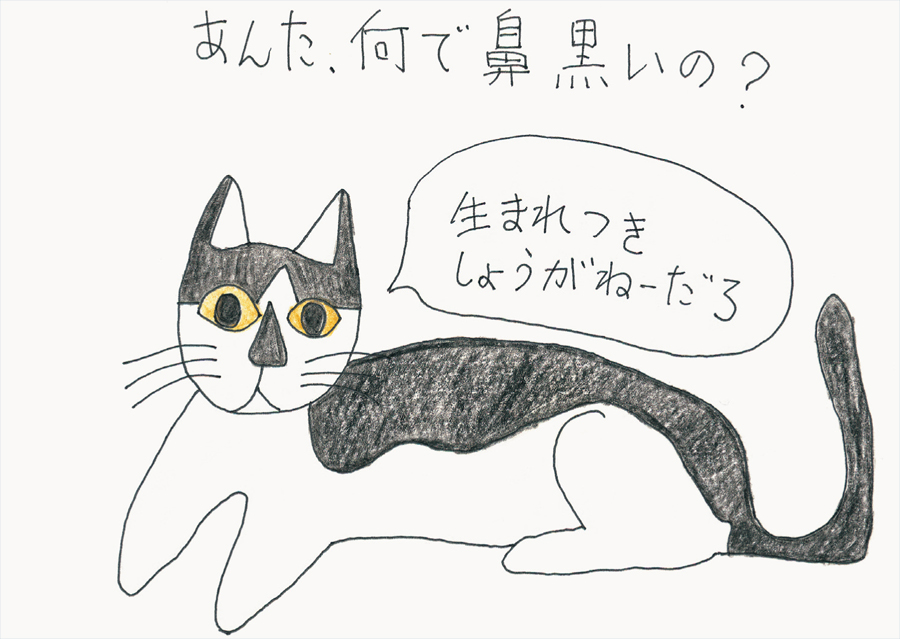 あんた、何で鼻黒いの?
生まれつき
しょうがねーだろ